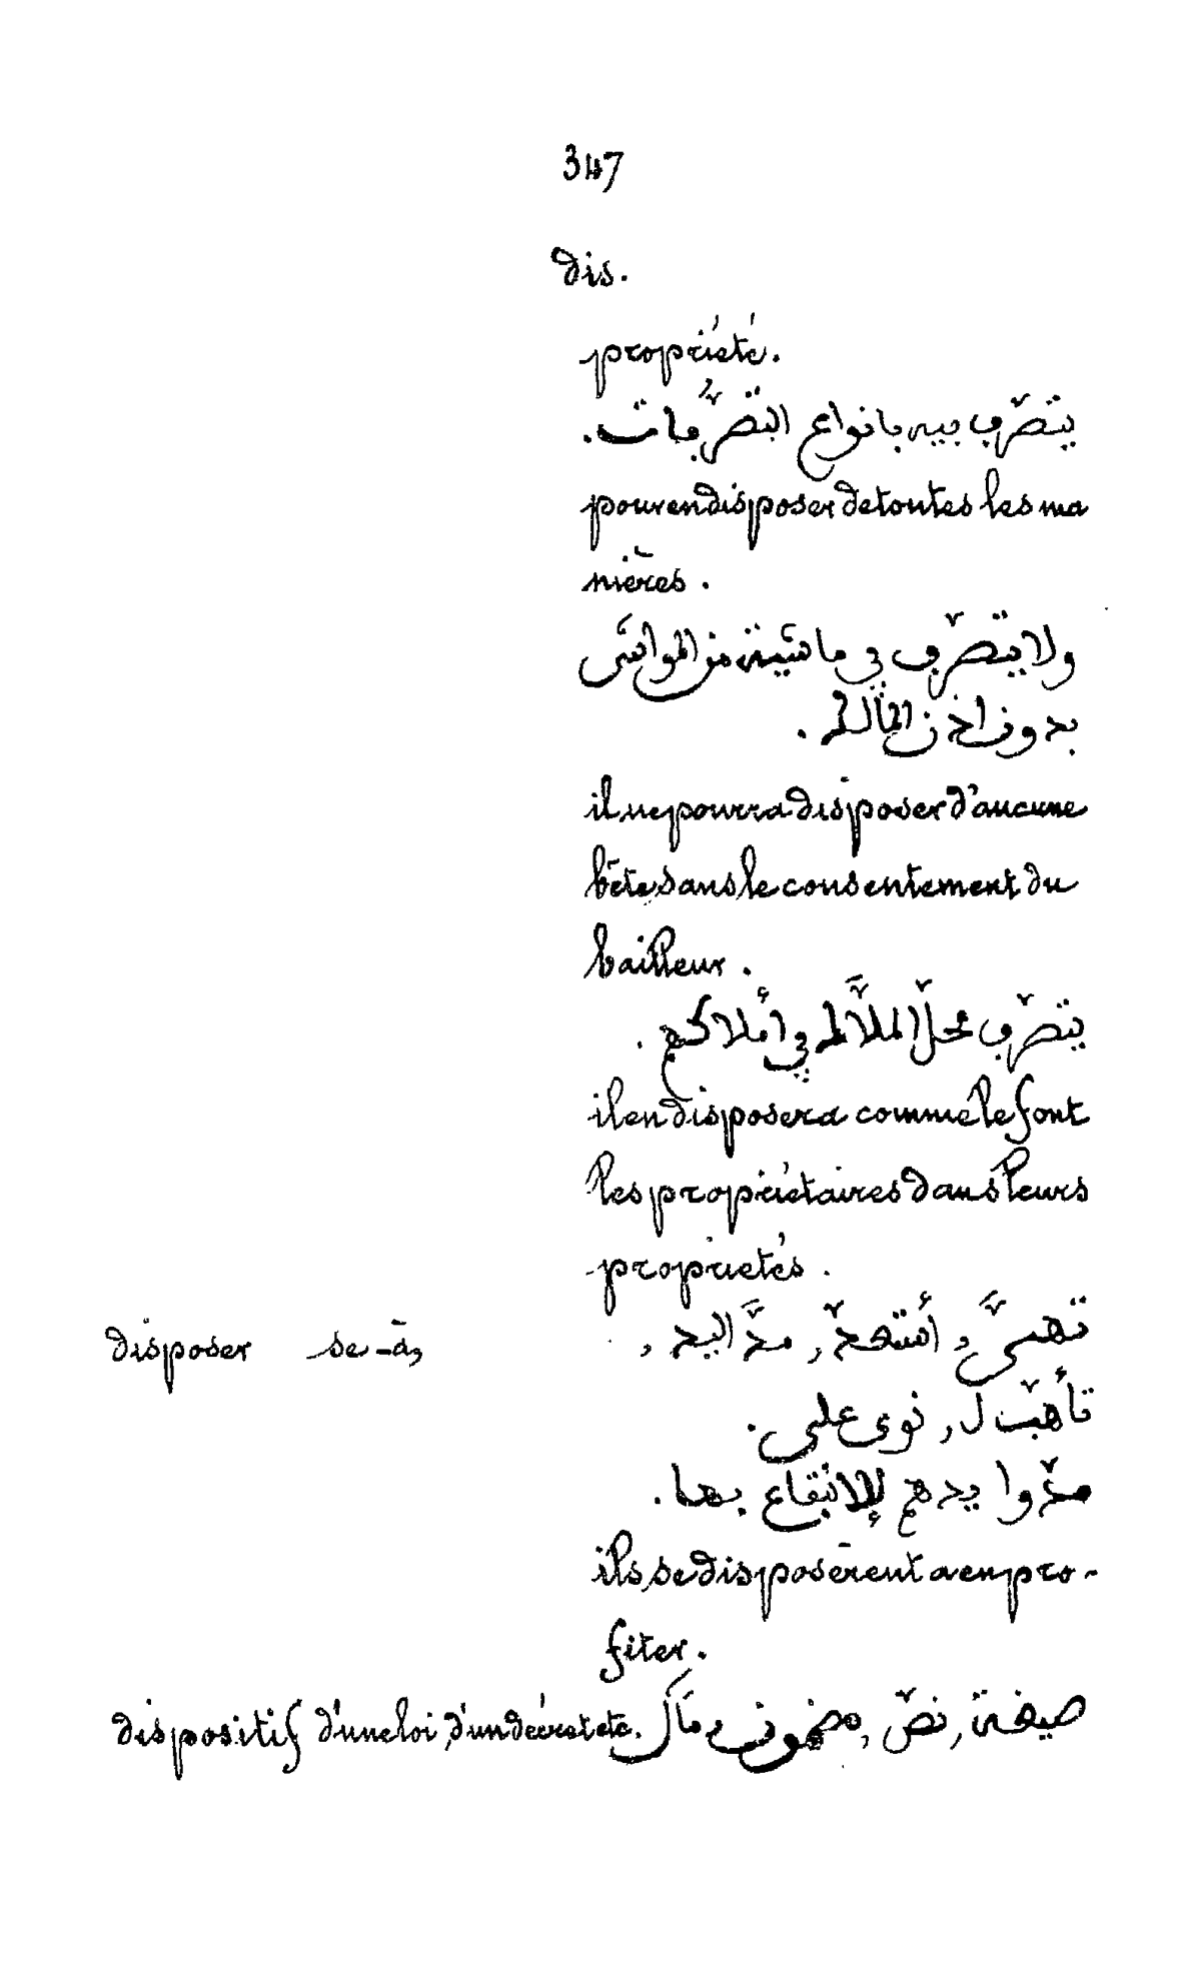 347
dis.
propriété.
يتصرّف فيه بانواع التصرُّفات.
pour en disposer de toutes les ma
nières.
ولا يتصرّف في ماشية من المواشى
بدون اذن المالك.
il ne pourra disposer d'aucune
bête sans le consentement du
bailleur.
يتصرّف محلّ الملاَّك في أملاكهم.
il en disposera comme le font
les propriétaires dans leurs
propriétés.
disposer se-à, تهيَّى, أستعدّ, مدَّ اليد,
تأهّب ل, نوى على.
مدّوا يدهم للإنتفاع بها.
ils se disposèrent a en pro-
fiter.
dispositif d'une loi, d'un décret etc. صيغة, نصّ, مضمون, مَآل